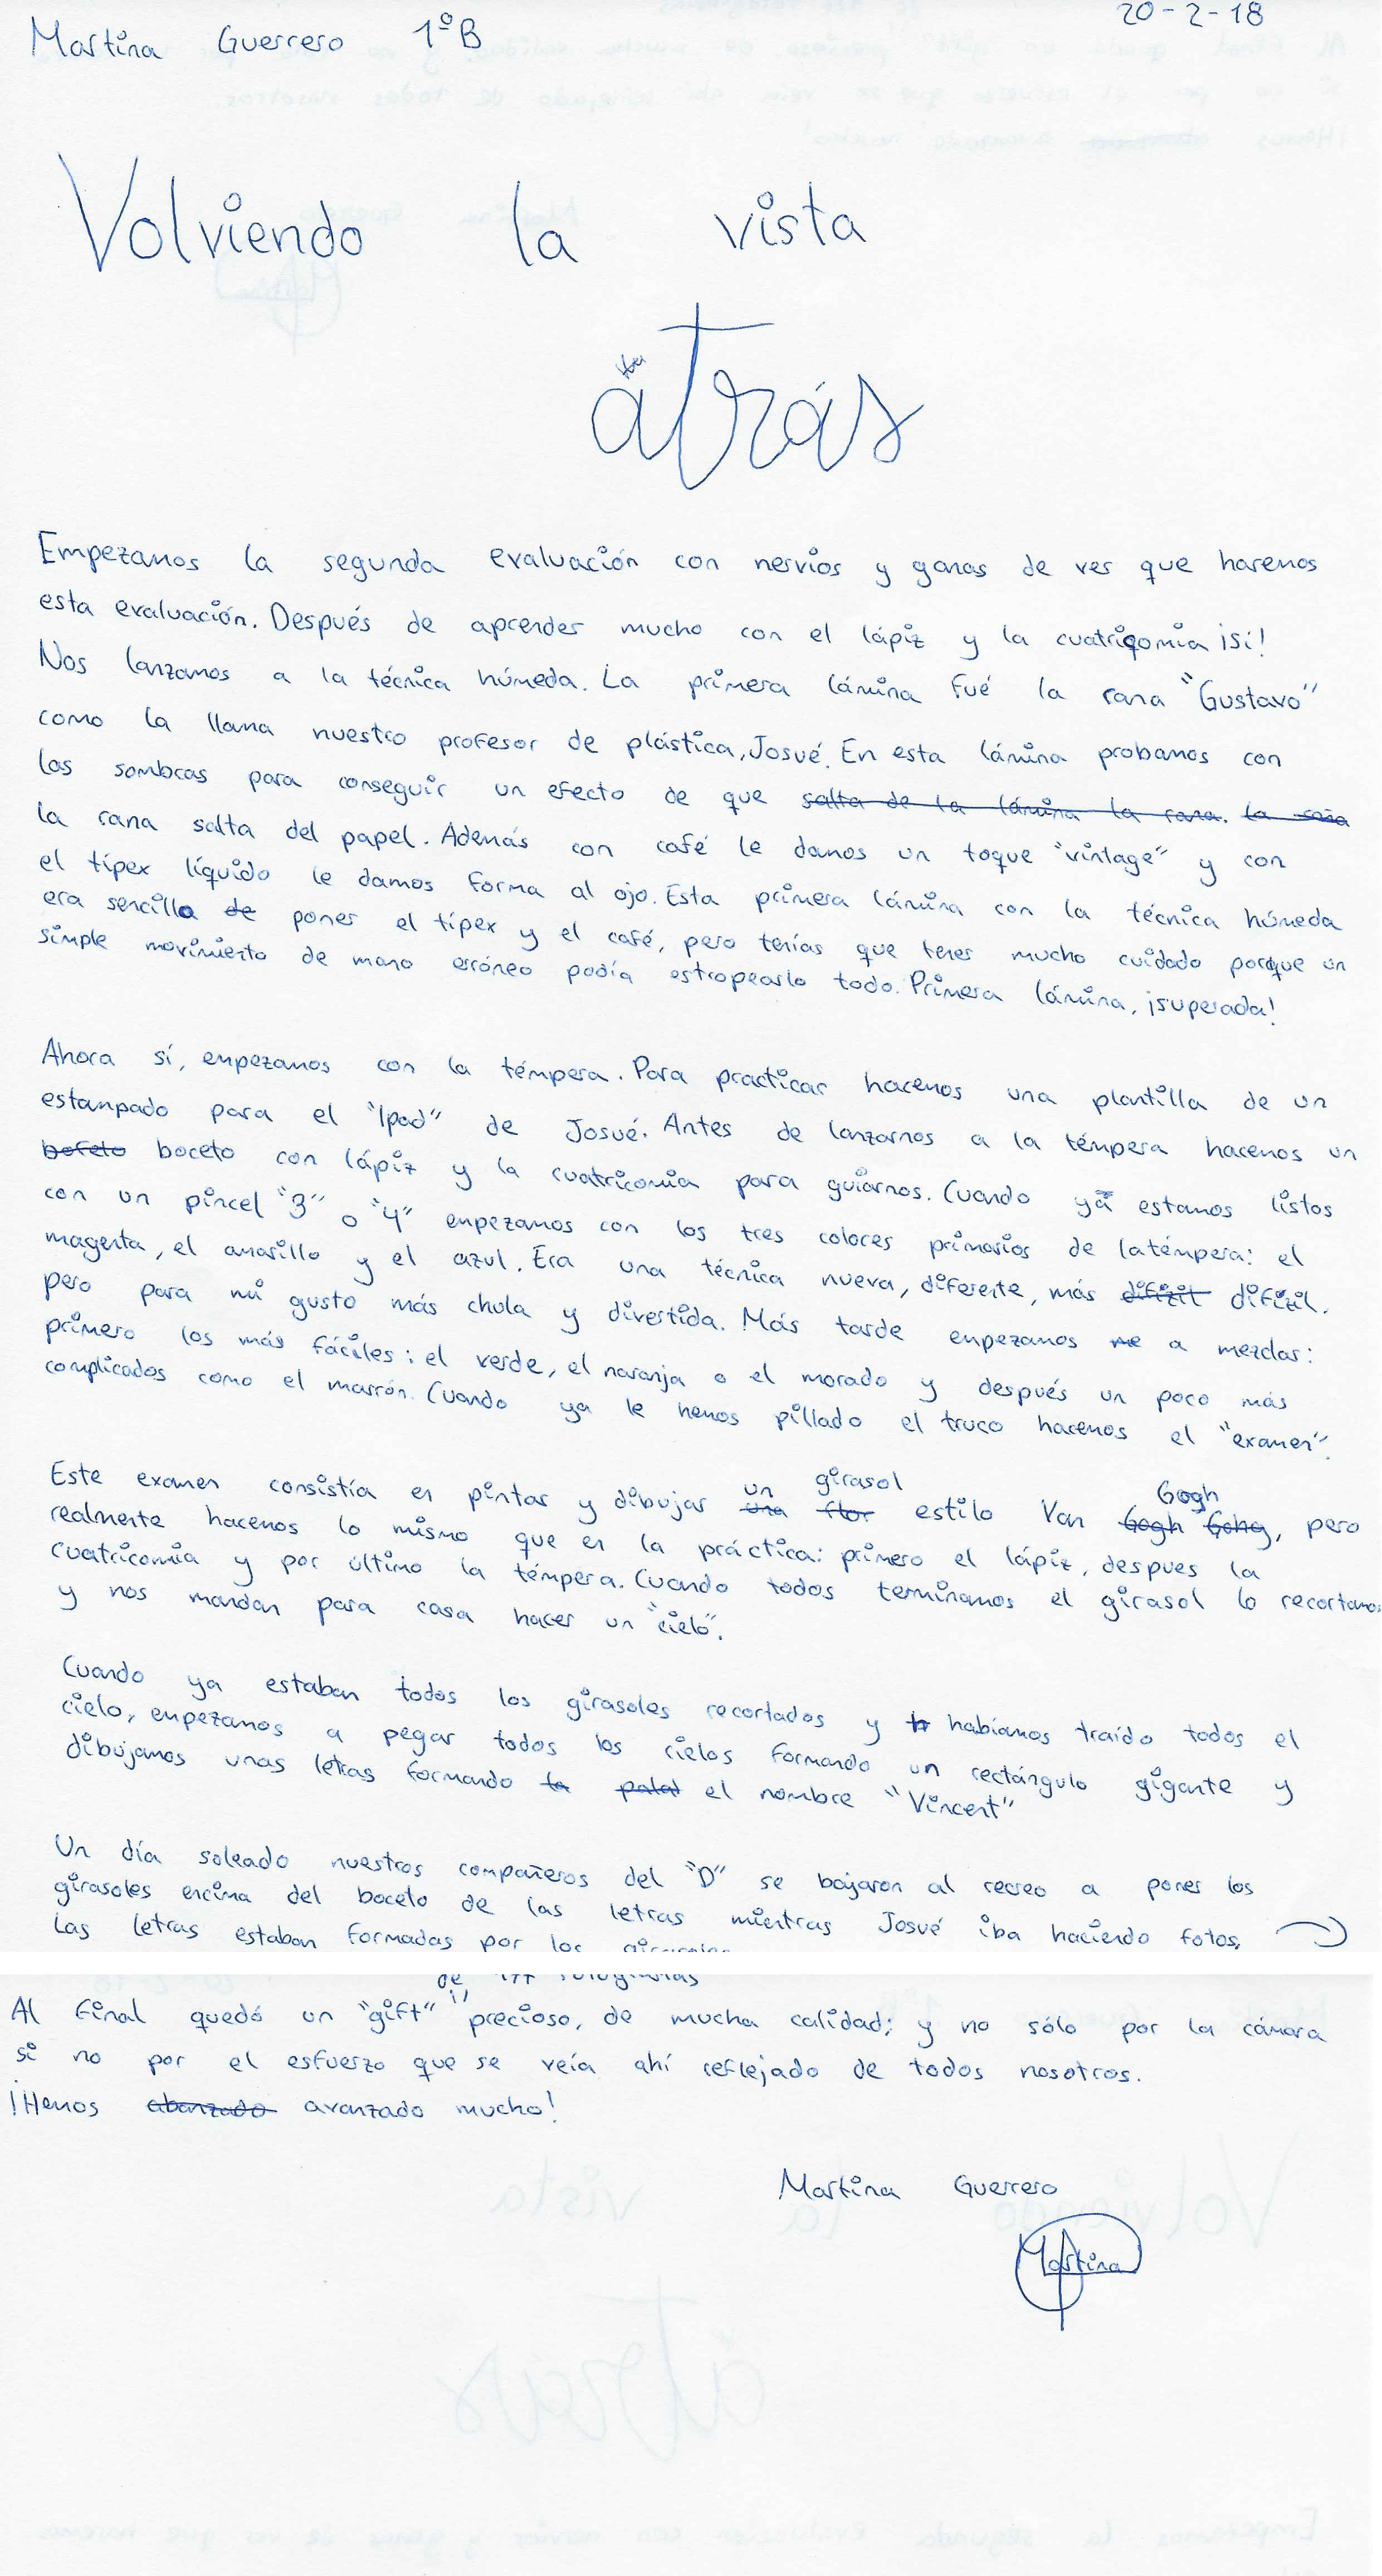 20-2-18
Martina Guerrero 1ºB
Volviendo la vista
atrás
Empezamos la segunda evaluación con nervios y ganas de ver que haremos
esta evaluación. Después de aprender mucho con el lápiz y la cuatricomía ¡sí!
Nos lanzamos a la técnica húmeda. La primera lámina fué la rana "Gustavo"
como la llama nuestro profesor de plástica, Josué. En esta lámina probamos con
las sombras para conseguir un efecto de que salta de la lámina la rana. la
la rana salta del papel. Además con café le damos un toque "vintage" y con
el típex líquido le damos forma al ojo. Esta primera lámina con la técnica húmeda
era sencilla de poner el típex y el café, pero tenías que tener mucho cuidado porque un
simple movimiento de mano erróneo podía estropearlo todo. Primera lámina, ¡superada!
Ahora sí, empezamos con la témpera. Para practicar hacemos una plantilla de un
estampado para el "Ipad" de Josué. Antes de lanzarnos a la témpera hacemos un
bofeto boceto con lápiz y la cuatricomía para guiarnos. Cuando ya estamos listos
con un pincel "3" o "4" empezamos con los tres colores primarios de la témpera: el
magenta, el amarillo y el azul. Era una técnica nueva, diferente, más difizil difízil.
pero para mi gusto más chula y divertida. Más tarde empezamos me a mezclar:
primero los más fáciles: el verde, el naranja o el morado y después un poco más
complicados como el marrón. Cuando ya le hemos pillado el truco hacemos el "examen".
Este examen consistía en pintar y dibujar una un flor girasol estilo Van Gogh Gohg Gogh, pero
realmente hacemos lo mismo que en la práctica: primero el lápiz, despues la
cuatricomía y por último la témpera. Cuando todos terminamos el girasol lo recortamos
y nos mandan para casa hacer un "cielo".
Cuando ya estaban todos los girasoles recortados y h habíamos traído todos el
cielo, empezamos a pegar todos los cielos formando un rectángulo gigante y
dibujamos unas letras formando la palat el nombre "Vincent"
Un día soleado nuestros compañeros del "D" se bajaron al recreo a poner los
girasoles encima del boceto de las letras mientras Josué iba haciendo fotos,
Las letras estaban formadas por los girasoles
de fotografías
Al final quedó un "gift" precioso, de mucha calidad; y no sólo por la cámara
si no por el esfuerzo que se veía ahí reflejado de todos nosotros.
¡Hemos abanzado avanzado mucho!
Martina Guerrero
Martina